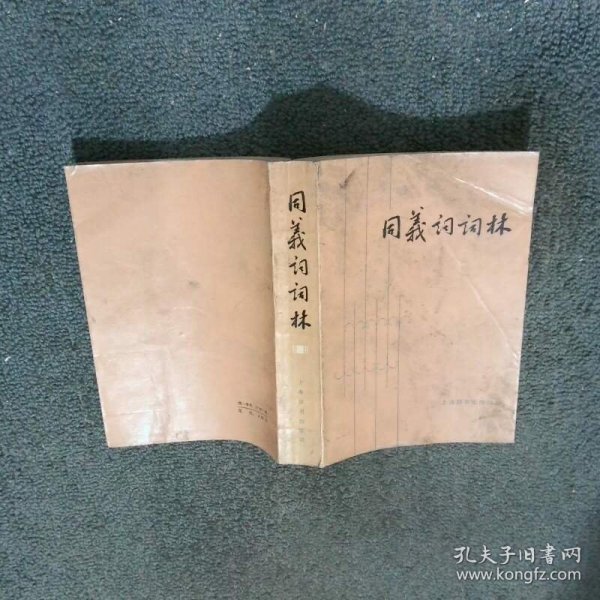 同義词词林
同義词词林
上海辞书出版社
上海辞书出版社
孔夫子旧书网
www.kongfz.com